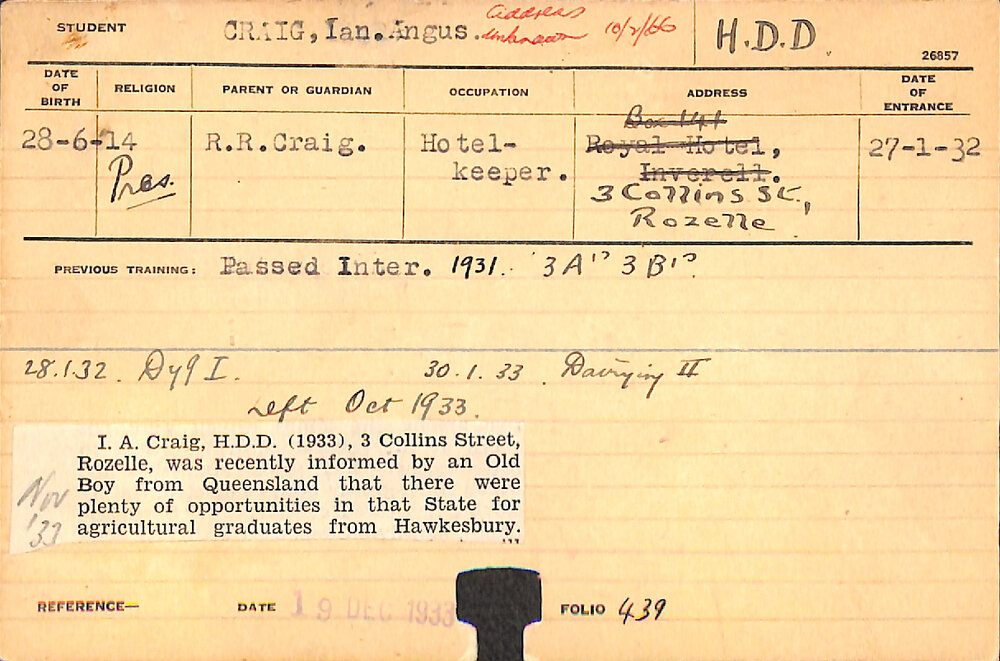 STUDENT CRAIG, Ian. Angus. address unknown 10/2/66 H.D.D.
26857
DATE OF BIRTH RELIGION PARENT OR GUARDIAN OCCUPATION ADDRESS DATE OF ENTRANCE
28-6-14 Pres. R.R.Craig. Hotel-keeper. 27-1-32
Box 141
Royal Hotel,
Inverell.
3 Collins St.,
Rozelle
PREVIOUS TRAINING: Passed Inter. 1931. 3A's 3B's
28.1.32. Dy I. 30.1.33. Dairying II
Left Oct 1933.
I. A. Craig, H.D.D. (1933), 3 Collins Street,
Rozelle, was recently informed by an Old
Boy from Queensland that there were
plenty of opportunities in that State for
agricultural graduates from Hawkesbury.
Nov
'33
REFERENCE— DATE 19 DEC 1933 FOLIO 439